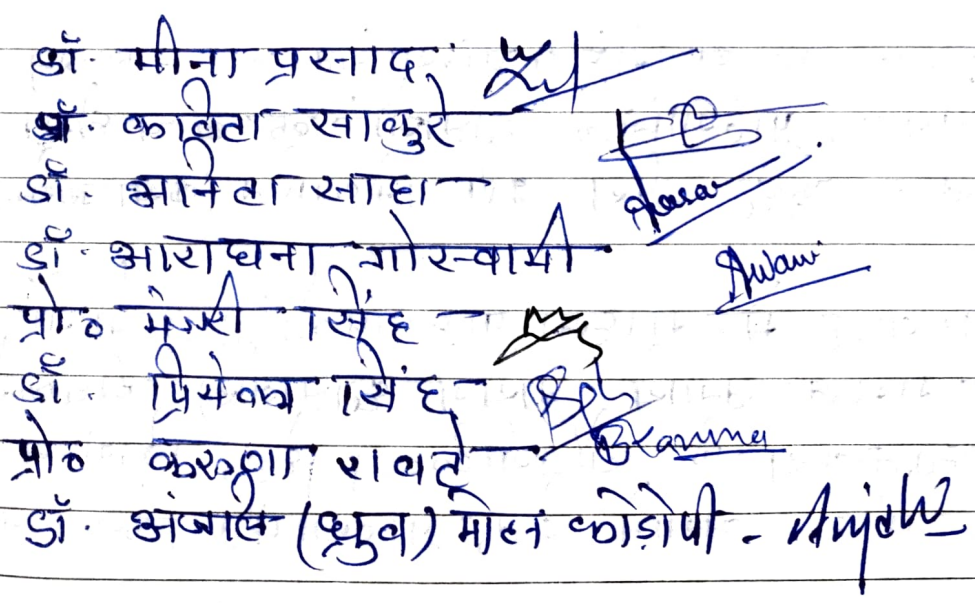 डॉ. मीना प्रसाद
डॉ. कविता साकुरे
डॉ. अनिता साहा
डॉ. आराधना गोस्वामी
प्रो० मंजरी सिंह
डॉ. प्रियंका सिंह
प्रो० करुणा रावटे Karuna
डॉ. अंजलि (ध्रुव) कोड़ोपी - Anjali